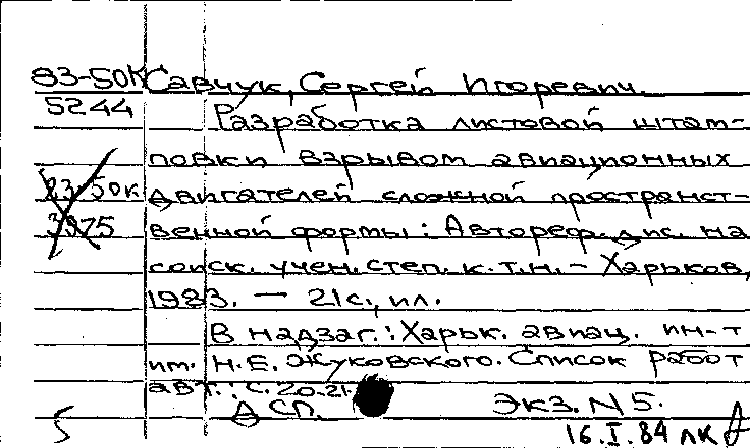 83-50К Савчук, Сергей Игоревич.
5244 Разработка листовой штам-
повки взрывом авиационных
83-50к двигателей сложной пространст-
3975 венной формы: Автореф. дис. на
соиск. учен. степ. к.т.н. - Харьков,
1983. - 21с., ил.
В надзаг.: Харьк. авиац. ин-т
им. Н.Е. Жуковского. Список работ
авт.: с. 20-21.
ДСП. Экз. N 5.
16.I.84 лк